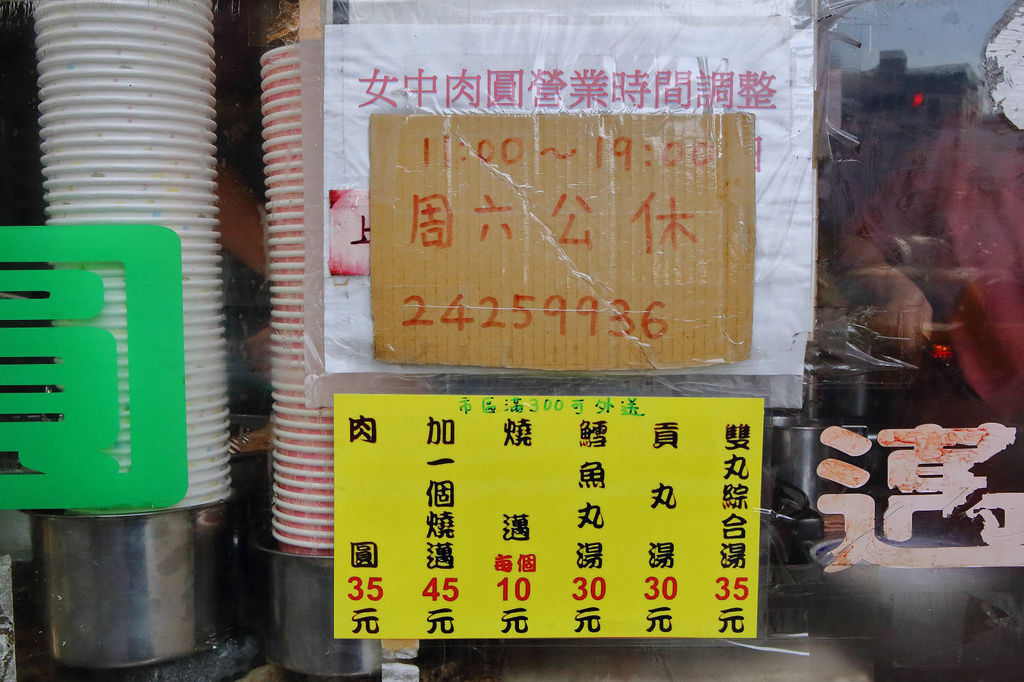 女中肉圓營業時間調整
11:00～19:00
上
周六公休
24259936
圓
市區滿300可外送
雙丸綜合湯35元
貢丸湯30元
鱈魚丸湯30元
燒邁每個10元
加一個燒邁45元
肉圓35元